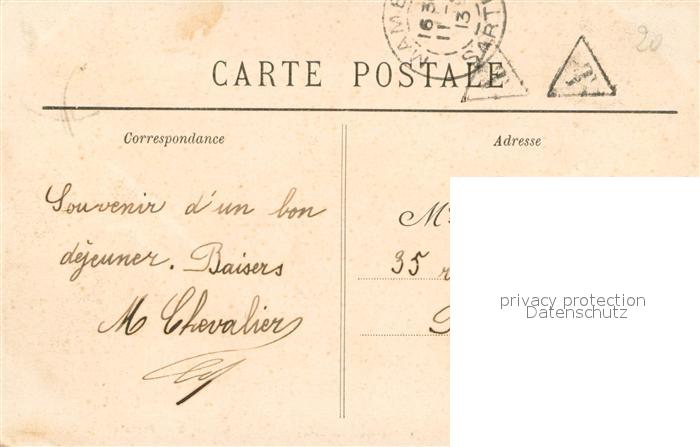 20
MAME
16 30
11 - 
13
SARTHE
T
CARTE POSTALE
Correspondance
Adresse
Souvenir d'un bon
déjeuner. Baisers
M Chevalier
M
35 r
privacy protection
Datenschutz